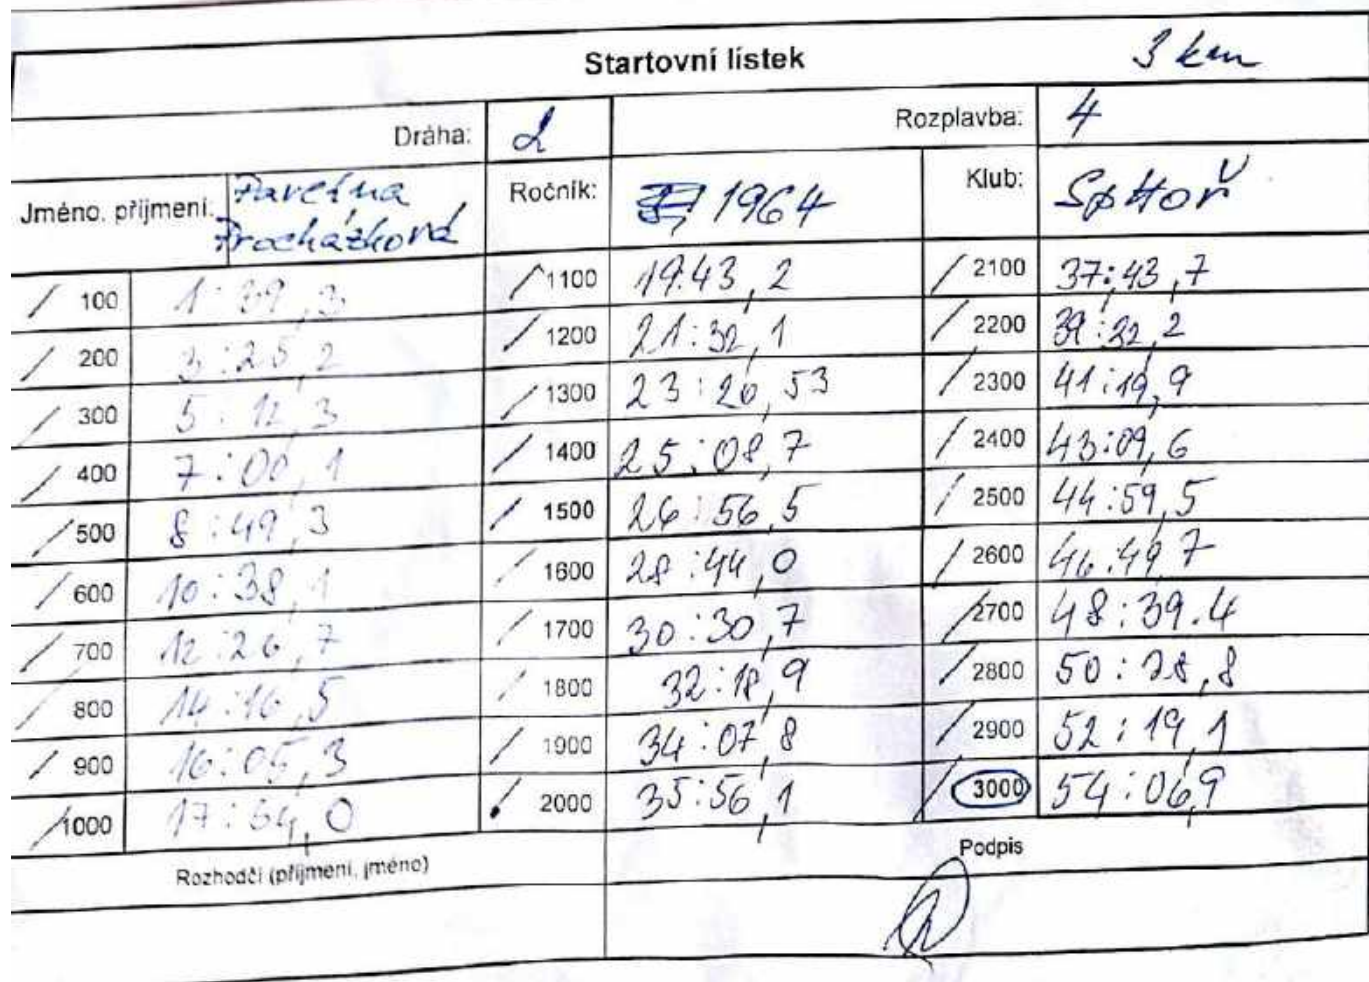 Startovní lístek 3 km
Dráha: 2 Rozplavba: 4
Jméno, příjmení: Pavelína Procházková Ročník: 1964 Klub: SpHoř
100 1:39,3 1100 19:43,2 2100 37:43,7
200 3:25,2 1200 21:32,1 2200 39:32,2
300 5:12,3 1300 23:20,53 2300 41:19,9
400 7:00,1 1400 25:08,7 2400 43:09,6
500 8:49,3 1500 26:56,5 2500 44:59,5
600 10:38,1 1600 28:44,0 2600 46:49,7
700 12:26,7 1700 30:30,7 2700 48:39.4
800 14:16,5 1800 32:18,9 2800 50:28,8
900 16:05,3 1900 34:07,8 2900 52:19,1
1000 17:54,0 2000 35:56,1 3000 54:06,9
Rozhodčí (příjmení, jméno) Podpis